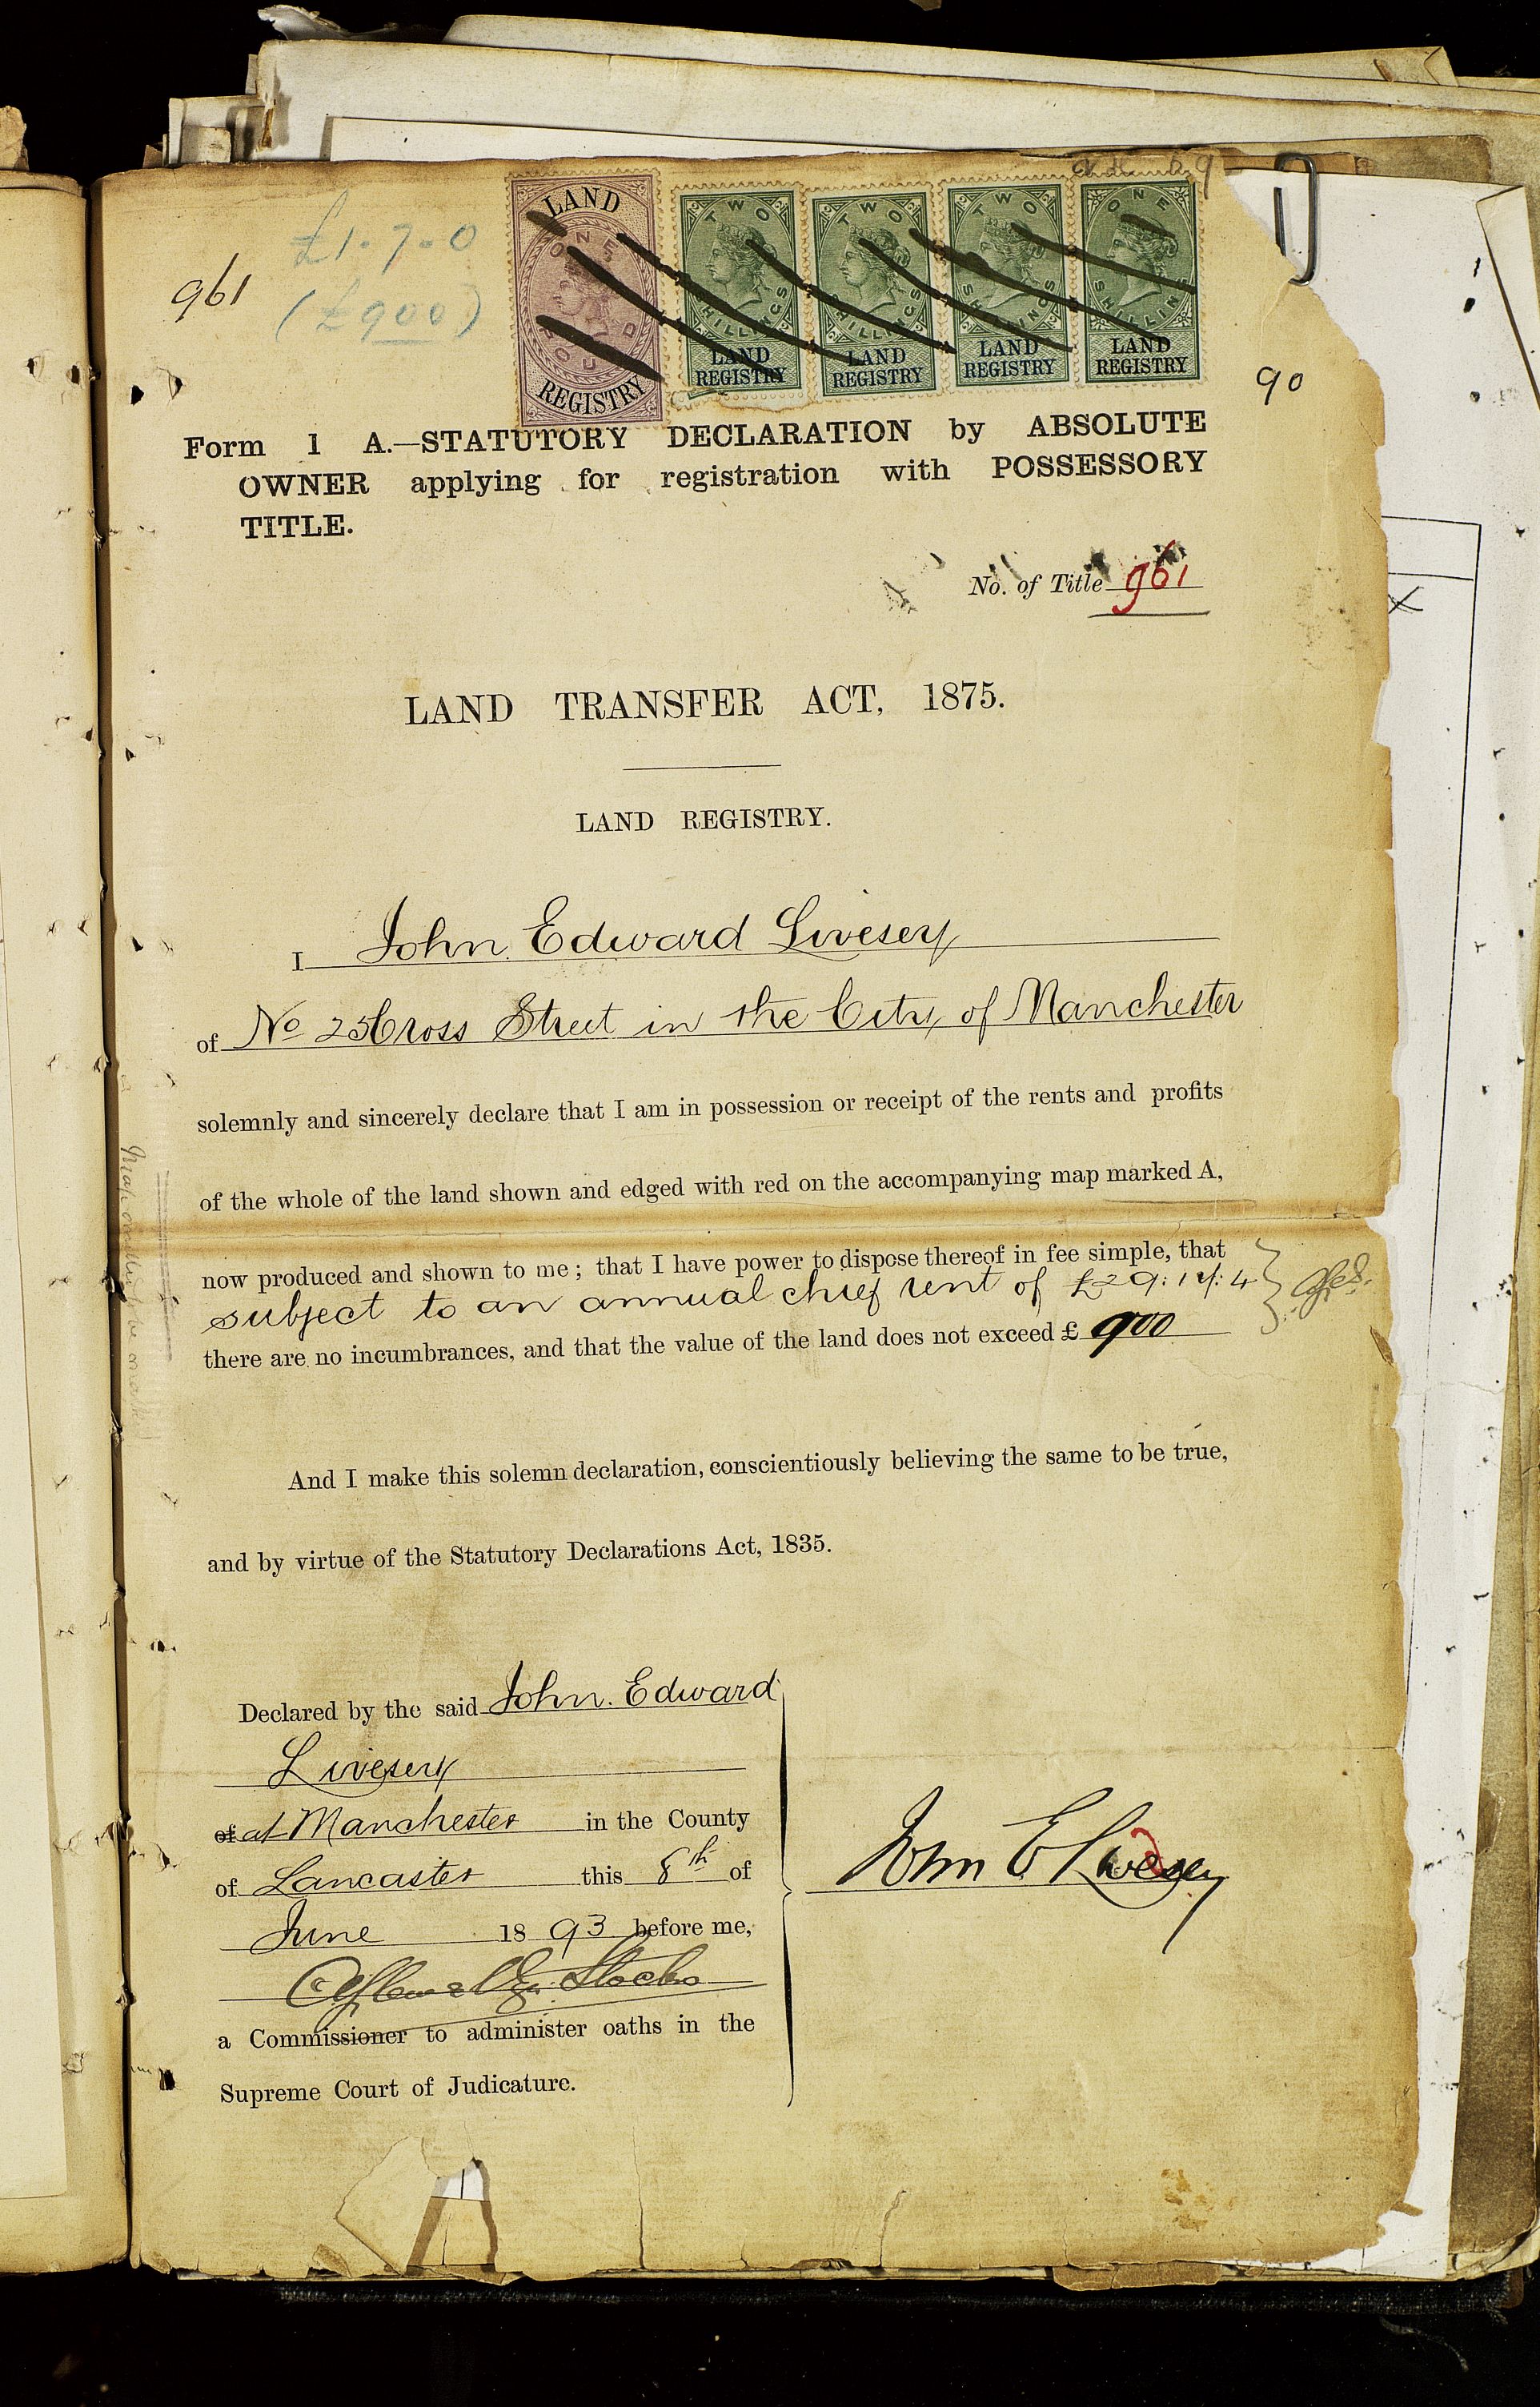 961
£1.7.0
(£900)
LAND
ONE
POUND
REGISTRY
TWO
SHILLINGS
LAND
REGISTRY
TWO
SHILLINGS
LAND
REGISTRY
TWO
SHILLINGS
LAND
REGISTRY
ONE
SHILLING
LAND
REGISTRY
90
Form 1 A.—STATUTORY DECLARATION by ABSOLUTE
OWNER applying for registration with POSSESSORY
TITLE.
No. of Title 961
LAND TRANSFER ACT, 1875.
LAND REGISTRY.
I John Edward Livesey
of No 25 Cross Street in the City of Manchester
solemnly and sincerely declare that I am in possession or receipt of the rents and profits
of the whole of the land shown and edged with red on the accompanying map marked A,
now produced and shown to me; that I have power to dispose thereof in fee simple, that
subject to an annual chief rent of £29:14:4
there are no incumbrances, and that the value of the land does not exceed £ 900
And I make this solemn declaration, conscientiously believing the same to be true,
and by virtue of the Statutory Declarations Act, 1835.
Declared by the said John Edward
Livesey
of at Manchester in the County
of Lancaster this 8th of
June 1893 before me,
a Commissioner to administer oaths in the
Supreme Court of Judicature.
John E Livesey